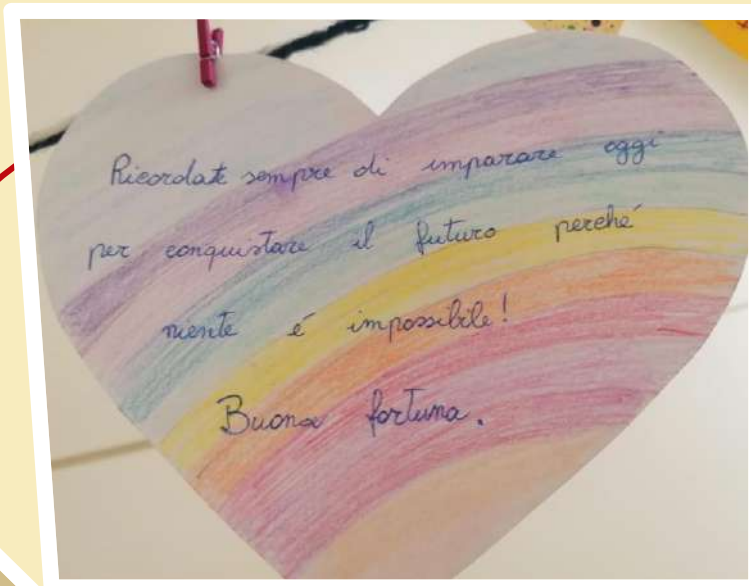 Ricordate sempre di imparare oggi
per conquistare il futuro perché
niente é impossibile!
Buona fortuna.